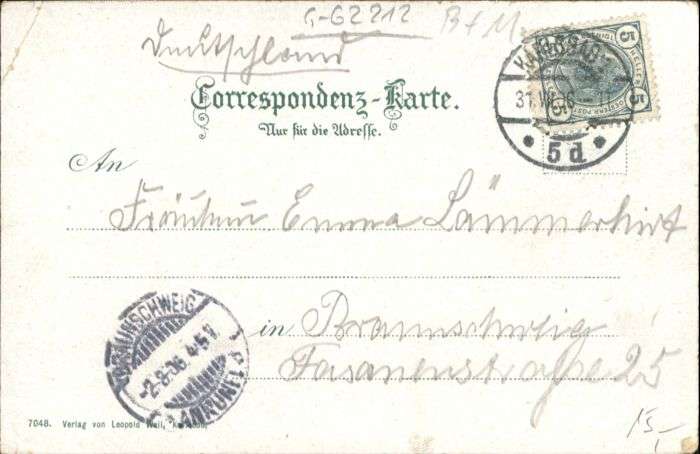 G-62212
B+M
Deutschland
Correspondenz-Karte.
Nur für die Adresse.
KARLSBAD 1
5 d
5 HELLER 5
An
Fräulein Emma Lämmerhirt
in Braunschweig
Fasanenstraße 25
BRAUNSCHWEIG
-2.8.06. 4-5 V.
ANKUNFT
15,-
7048. Verlag von Leopold Weil,